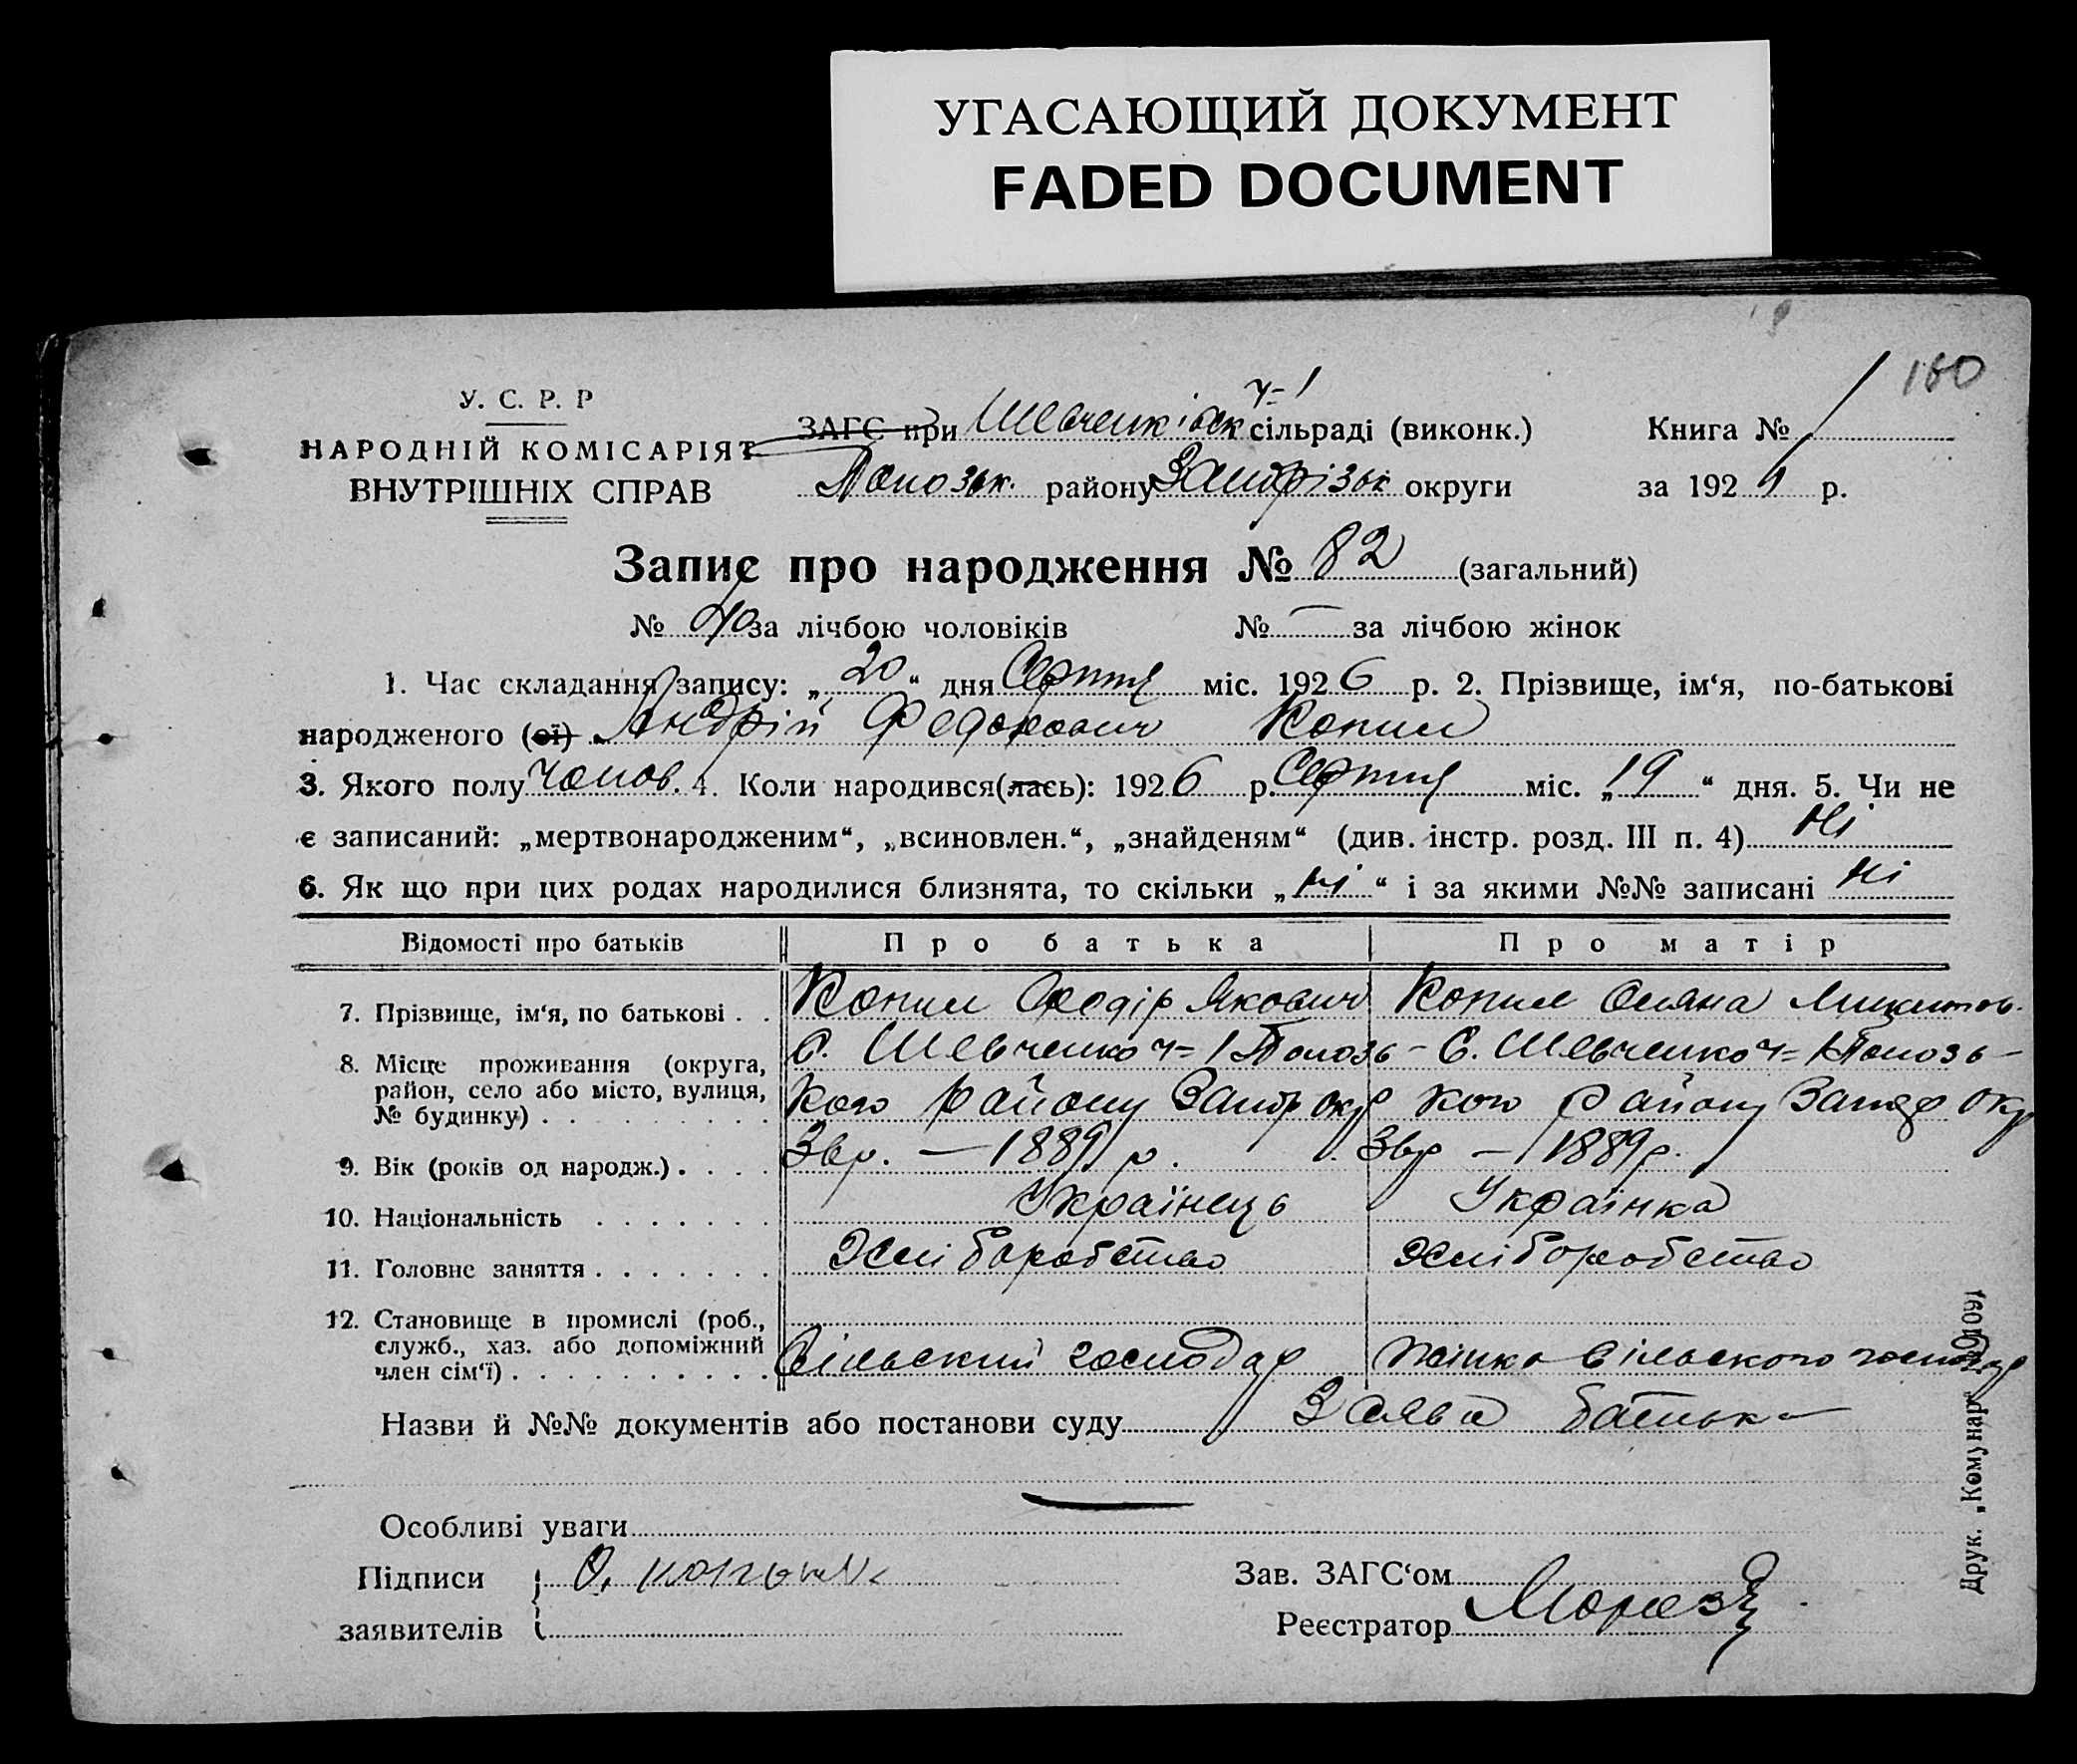 УГАСАЮЩИЙ ДОКУМЕНТ
FADED DOCUMENT
160
У. С. Р. Р
НАРОДНІЙ КОМІСАРІЯТ
ВНУТРІШНІХ СПРАВ
ЗАГС при Шевченківськ ч=1 сільраді (виконк.)
Книга № 1
Полозьк. району Запорізьк округи
за 192 р.
Запис про народження № 82 (загальний)
№ 40 за лічбою чоловіків № — за лічбою жінок
1. Час складання запису: „20“ дня Серпня міс. 1926 р. 2. Прізвище, ім‘я, по-батькові
народженого (ої) Андрій Федорович Копил
3. Якого полу Чолов. 4. Коли народився(лась): 1926 р. Серпня міс. „19“ дня. 5. Чи не
є записаний: „мертвонародженим“, „всиновлен.“, „знайденям“ (див. інстр. розд. III п. 4) Ні
6. Як що при цих родах народилися близнята, то скільки „ні“ і за якими №№ записані ні
Відомості про батьків Про батька Про матір
7. Прізвище, ім‘я, по батькові . . Копил Федір Якович Копил Оляна Микитов.
8. Місце проживання (округа, район, село або місто, вулиця, № будинку) . . . . . . . . .
С. Шевченко ч=1 Полозь- С. Шевченко ч=1 Полозь-
кого району Запор окр кого району Запор окр
9. Вік (років од народж.) . . . . Звр. — 1889 р. Звр — 1889 р.
10. Національність . . . . . . . Українець Українка
11. Головне заняття . . . . . . . Хліборобство Хліборобство
12. Становище в промислі (роб., служб., хаз. або допоміжний член сім‘ї) . . . . . . . . . . .
Сільский господар Жінка сільского господар
Назви й №№ документів або постанови суду Заява батька
Особливі уваги
Підписи
заявителів
Зав. ЗАГС‘ом
Реєстратор Мороз
Друк. „Комунар“